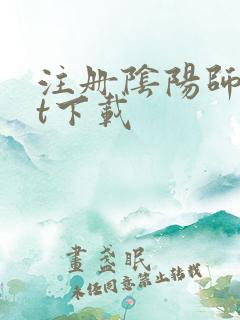 注册陰陽師
t下載
畫盞眠
未经同意禁止转载